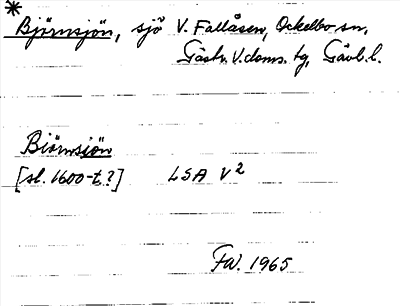 * Björnsjön, sjö V. Fallåsen, Ockelbo sn,
Gästr. V. doms. tg, Gävl. l.
Biörnsjön
[sl. 1600-t.?] LSA V2
FW. 1965